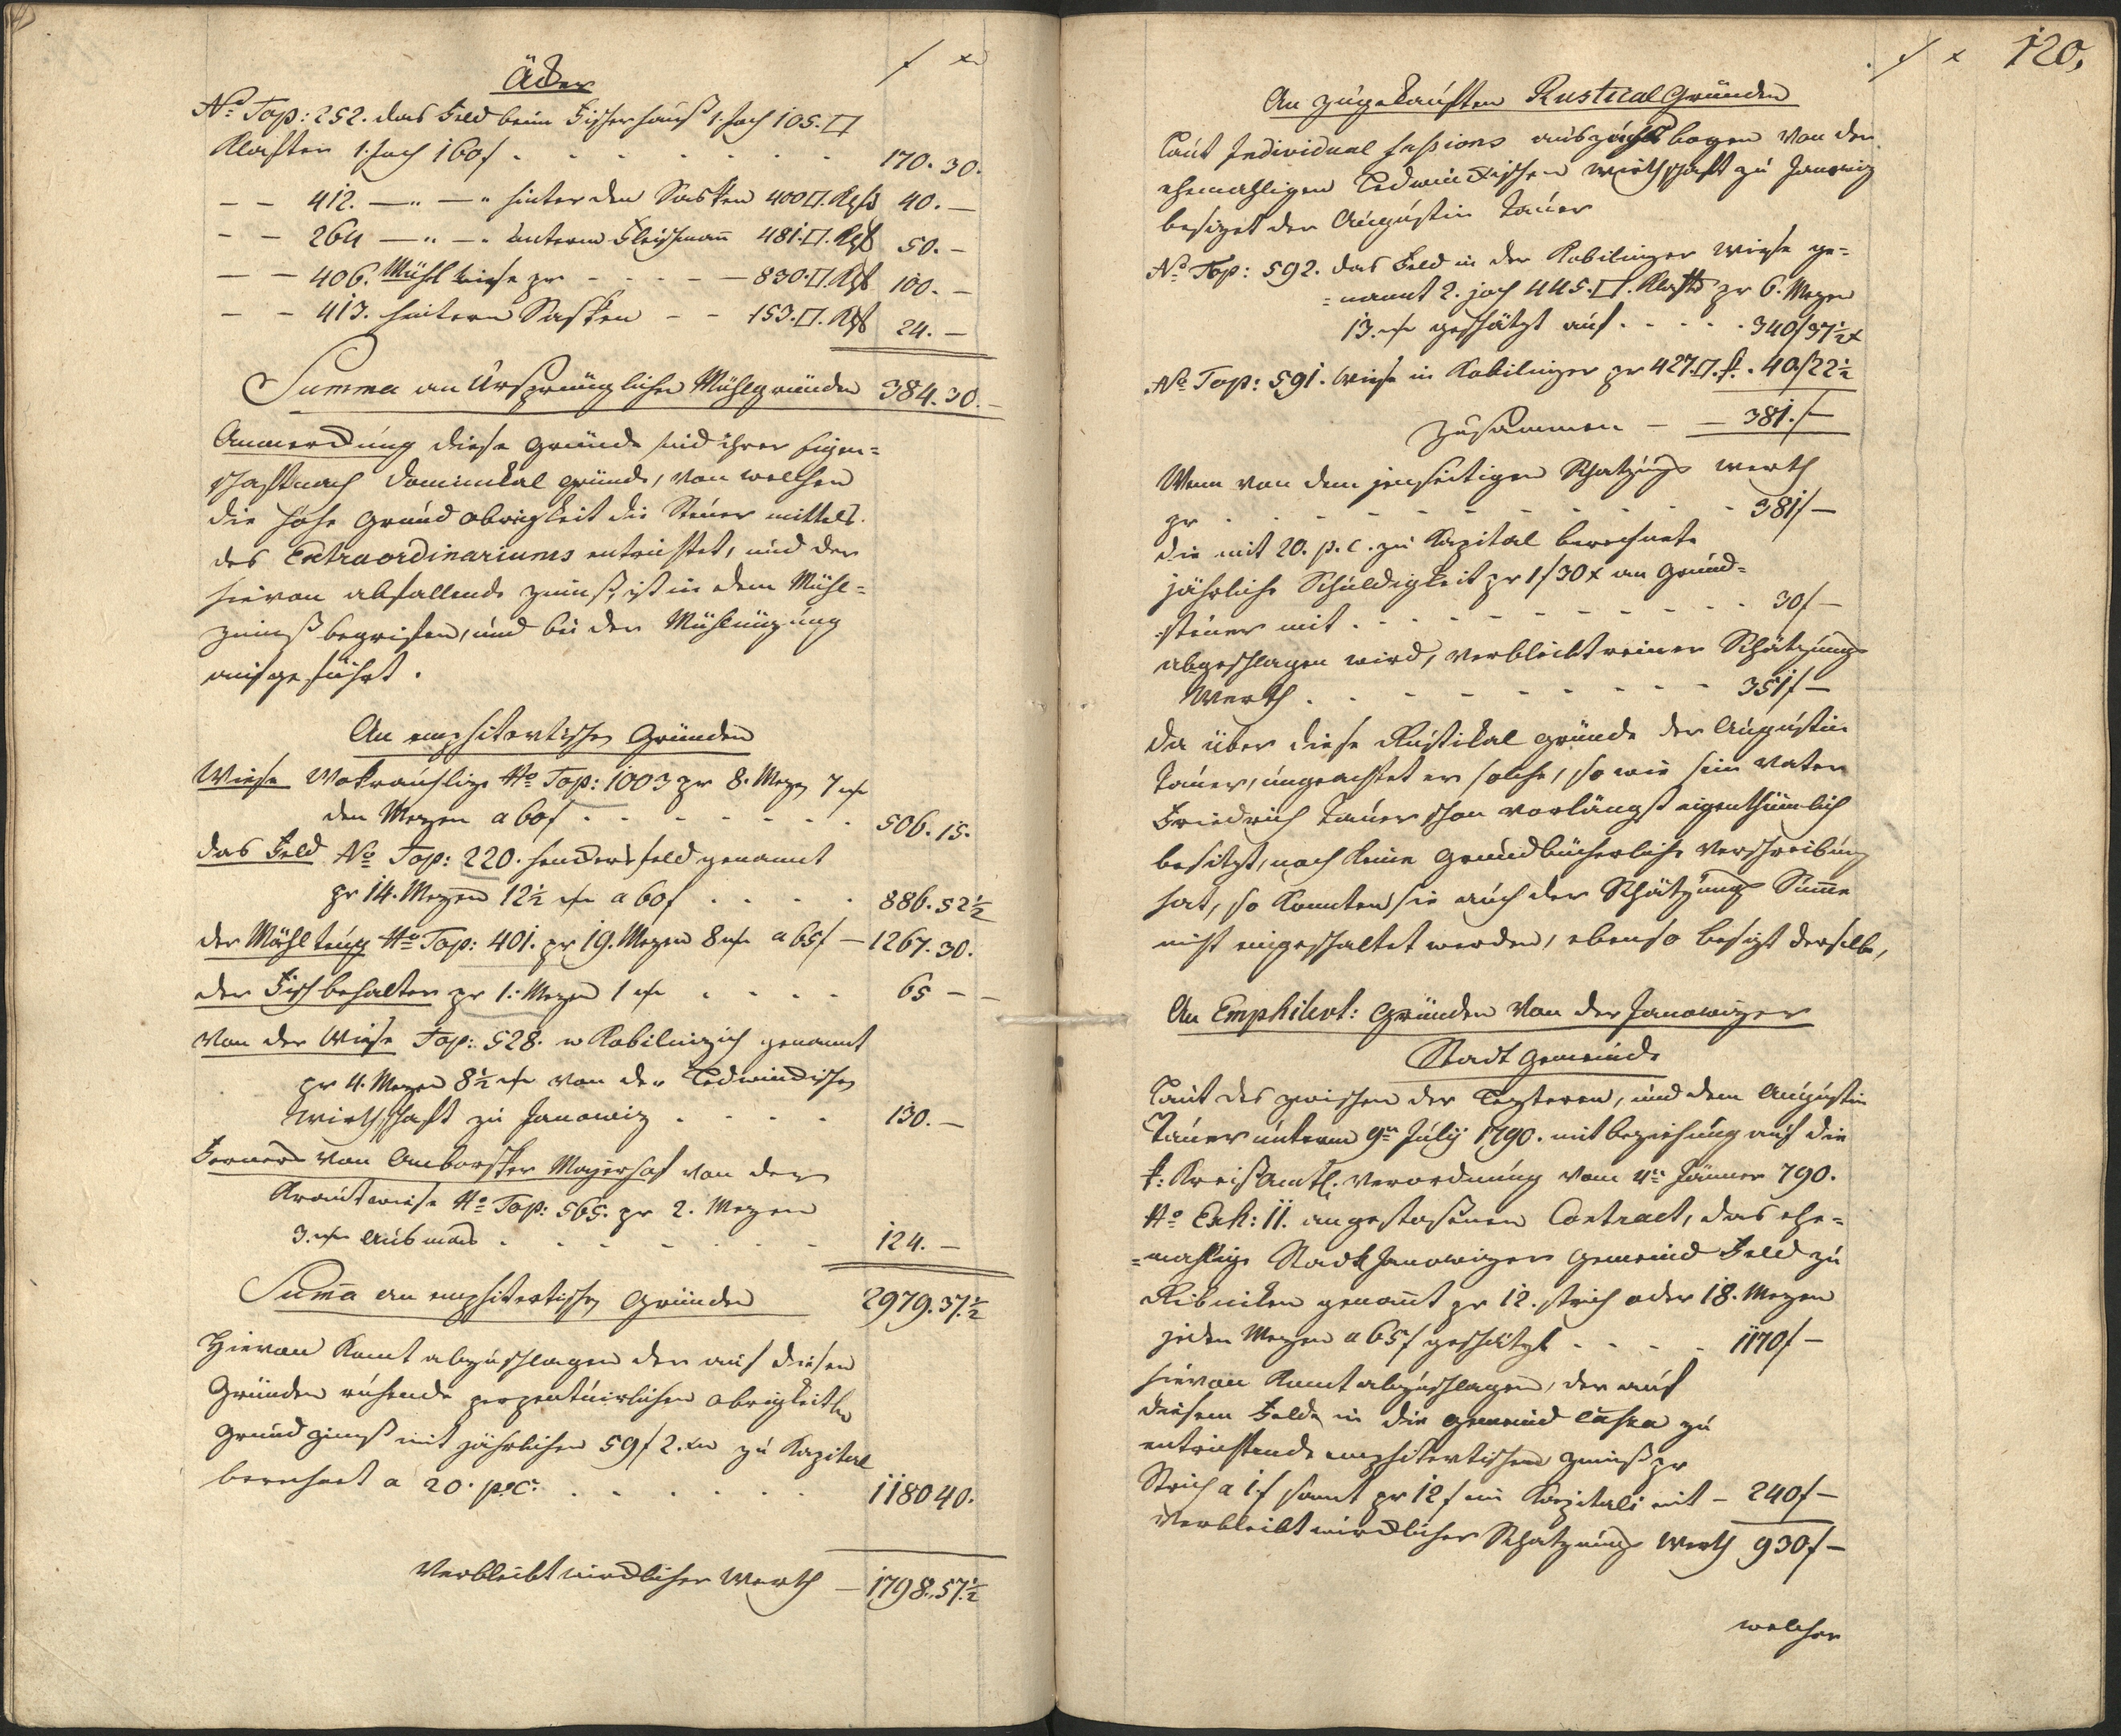 f xr
Äcker
No Top: 252. das Feld beim Fischerhauß 1. Joch 105. □
Klafter 1. Joch 160 f . . . . . . . 170. 30.
– – 412. —"— " hinter den 400 □. Klft 40. –
– – 264 —"— " unterm Fleischmann 481. □. Klft 50. –
– – 406. Mühl wiese pr – – – – 830. □. Klft 100. –
– – 413. hintern – – 153. □. Klft 24. –
Summa an Ursprünglichen Mühlgründen 384. 30. –
Anmerckung diese Gründe sind ihrer Eigen=
schaft nach Dominikal gründe, von welchen
die hohe Grund obrigkeit die Steuer mittels
des Extraordinariums entrichtet, und der
hievon abfallende Zinnß, ist in dem Mühl=
zinnß begriffen, und bei der Mühlnuzung
aufgeführt.
An emphiteotischen Gründen
Wiese No Top: 1003 pr 8. Mezen 7
den Mezen a 60 f . . . . . . . 506. 15.
das Feld No Top: 220. feld genannt
pr 14. Mezen 12½ a 60 f . . . . 886. 52½
der No Top: 401. pr 19. Mezen 8 a 65 f – 1267. 30.
der Fisch behalter pr 1. Mezen 1 . . . . 65 – –
Von der Wiese Top: 528. genannt
pr 4. Mezen 8½ von der Ledwinckischen
Wirthschaft zu Janowiz . . . . 130. –
Ferner von Mayerhof von der
Krautwiese No Top: 565. pr 2. Mezen
3. Ausmaas . . . . . . . 124. –
Summa an emphiteotischen Gründen 2979. 37.½
Hievon kommt abzuschlagen der auf diesen
Gründen ruhende perpetuirlichen obrigkeitln
Grund zinnß mit jährlichen 59 f 2. xr zu Kapital
berechnet a 20. p. C: . . . . . . 1180 40.
Verbleibt wircklicher Werth – 1798. 57.½
. f x 120.
An zugekauften Rustical Gründen
Laut Individual fassions auszugs bogen von der
ehemaligen Ledwinckischen Wirthschaft zu Janowiz
besizet der Augustin Tauer
No Top: 592. das Feld in der Kobilinzer Wiese ge=
=nannt 2. joch 445. □. Klaftr pr 6. Mezen
13. geschätzt auf . . . . . 340 f 37½ x
No Top: 591. Wiese in Kobilinzer pr 427. □. . 40 f 22½
Zusammen – – 381. f –
Wenn von dem jenseitigen Schatzungs werth
pr . . . . . . . . . . . . 381 f –
die mit 20. p. C. zu Kapital berechnete
jährliche Schuldigkeit pr 1 f 30 x an Grund=
steuer mit . . . . . . . . . . 30 f –
abgeschlagen wird, verbleibt reiner Schätzungs
Werth . . . . . . . . . 351 f –
Da über diese Rustikal gründe der Augustin
Tauer, ungeachtet er solche, so wie sein Vater
Friedrich Tauer schon vorlängst eigenthümlich
besitzt, noch keine Grundbücherliche Verschreibung
hat, so konnten sie auch der Schätzungs Summe
nicht eingeschaltet werden, ebenso besizt derselbe,
An Emphitevt: Gründen Von der Janowizer
Stadt Gemeinde
Laut des zwischen der Lezteren, und dem Augustin
Tauer unterm 9ten July 1790. mit beziehung auf die
k: Kreißamtl: Verordnung vom 4ten Jänner 790.
No Exh: 11. angestossenen Contract, das ehe=
=mahlige Stadt Janowizer Gemeind Feld zu
Ribniken genannt pr 12. strich oder 18. Mezen
jeden Mezen a 65 f geschätzt . . . . 1170 f –
hievon kommt abzuschlagen, der auf
diesem Felde in die Gemeind Cassa zu
entrichtende emphiteotischen Zinnß pr
Strich a 1 f somit pr 12 f im Kapitali mit – 240 f –
Verbleibt wirklicher Schatzungs Werth 930 f –
welcher